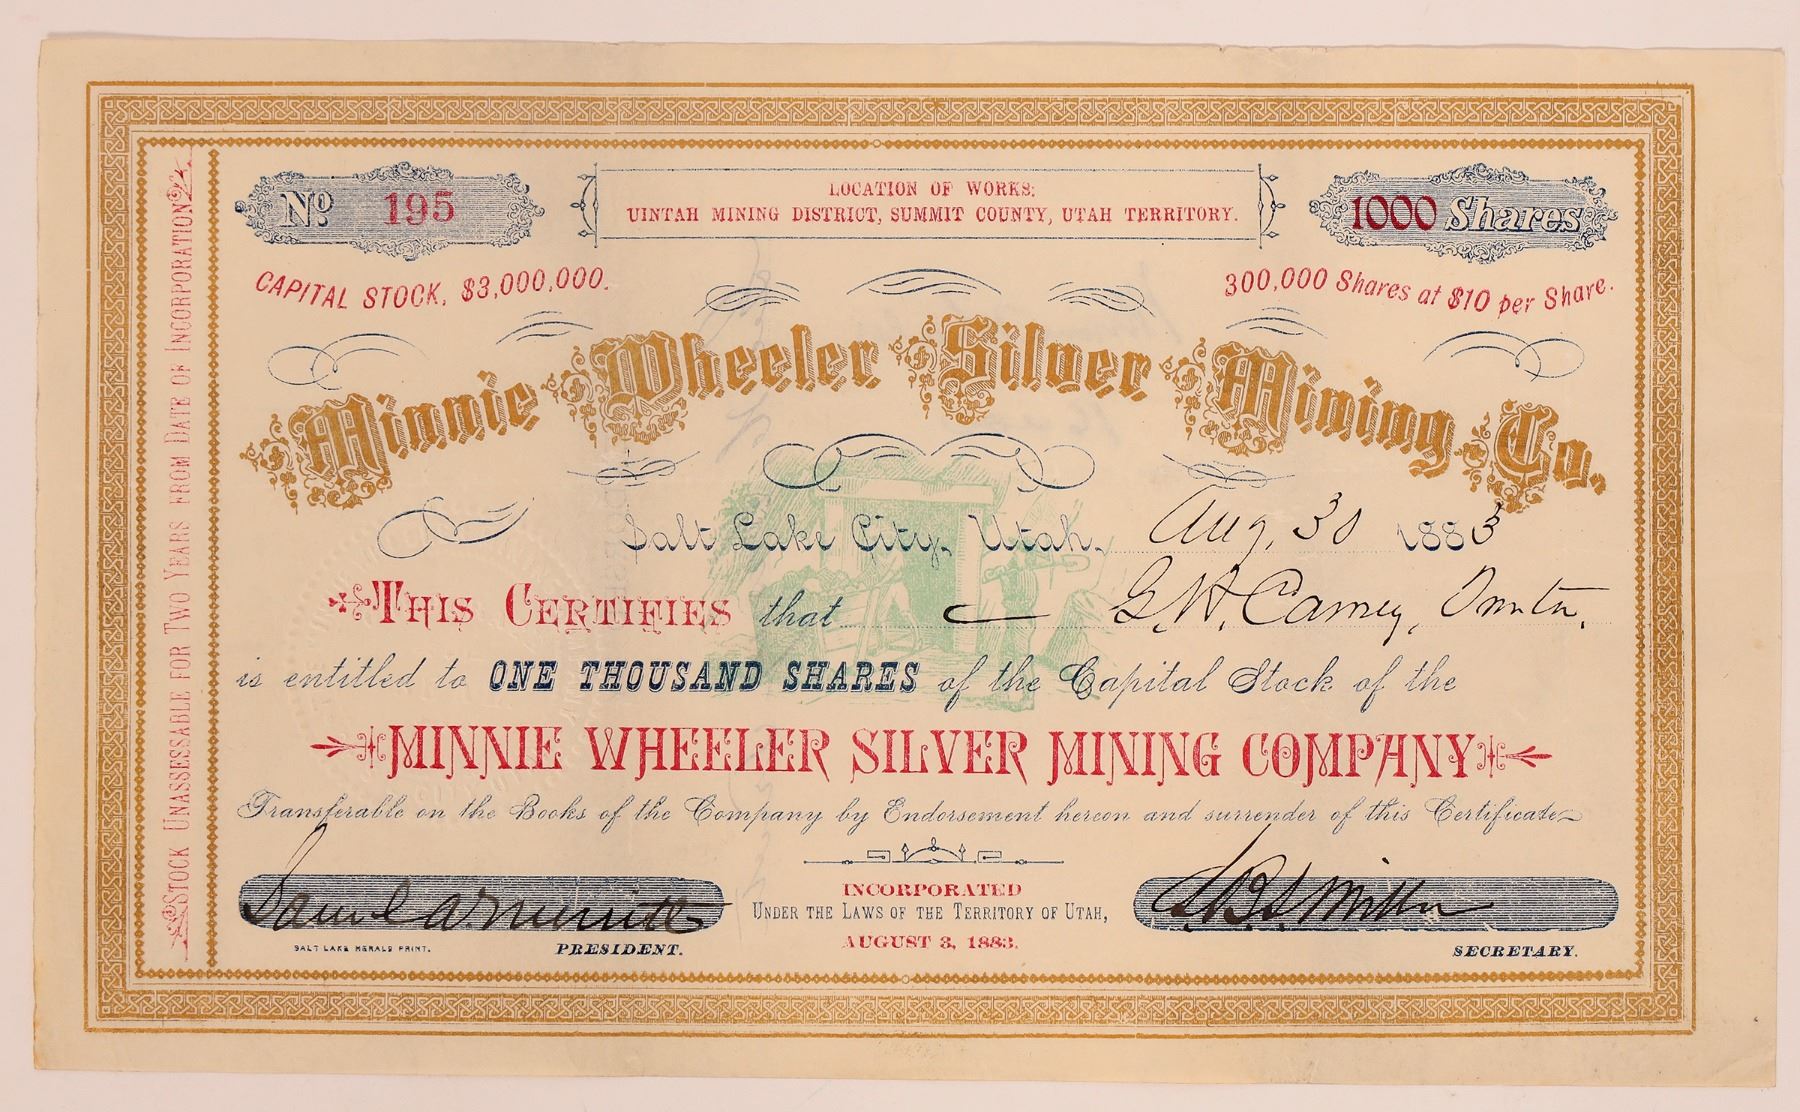 Nº 195
LOCATION OF WORKS:
UINTAH MINING DISTRICT, SUMMIT COUNTY, UTAH TERRITORY.
1000 Shares
CAPITAL STOCK, $3,000,000.
300,000 Shares at $10 per Share.
Minnie Wheeler Silver Mining Co.
Salt Lake City, Utah, Aug. 30 1883
THIS CERTIFIES that G. H. Carney,
is entitled to ONE THOUSAND SHARES of the Capital Stock of the
MINNIE WHEELER SILVER MINING COMPANY
Transferable on the Books of the Company by Endorsement hereon and surrender of this Certificate
Saml A. Merritt
SALT LAKE HERALD PRINT.
PRESIDENT.
INCORPORATED
UNDER THE LAWS OF THE TERRITORY OF UTAH,
AUGUST 3, 1883.
SECRETARY.
STOCK UNASSESSABLE FOR TWO YEARS FROM DATE OF INCORPORATION